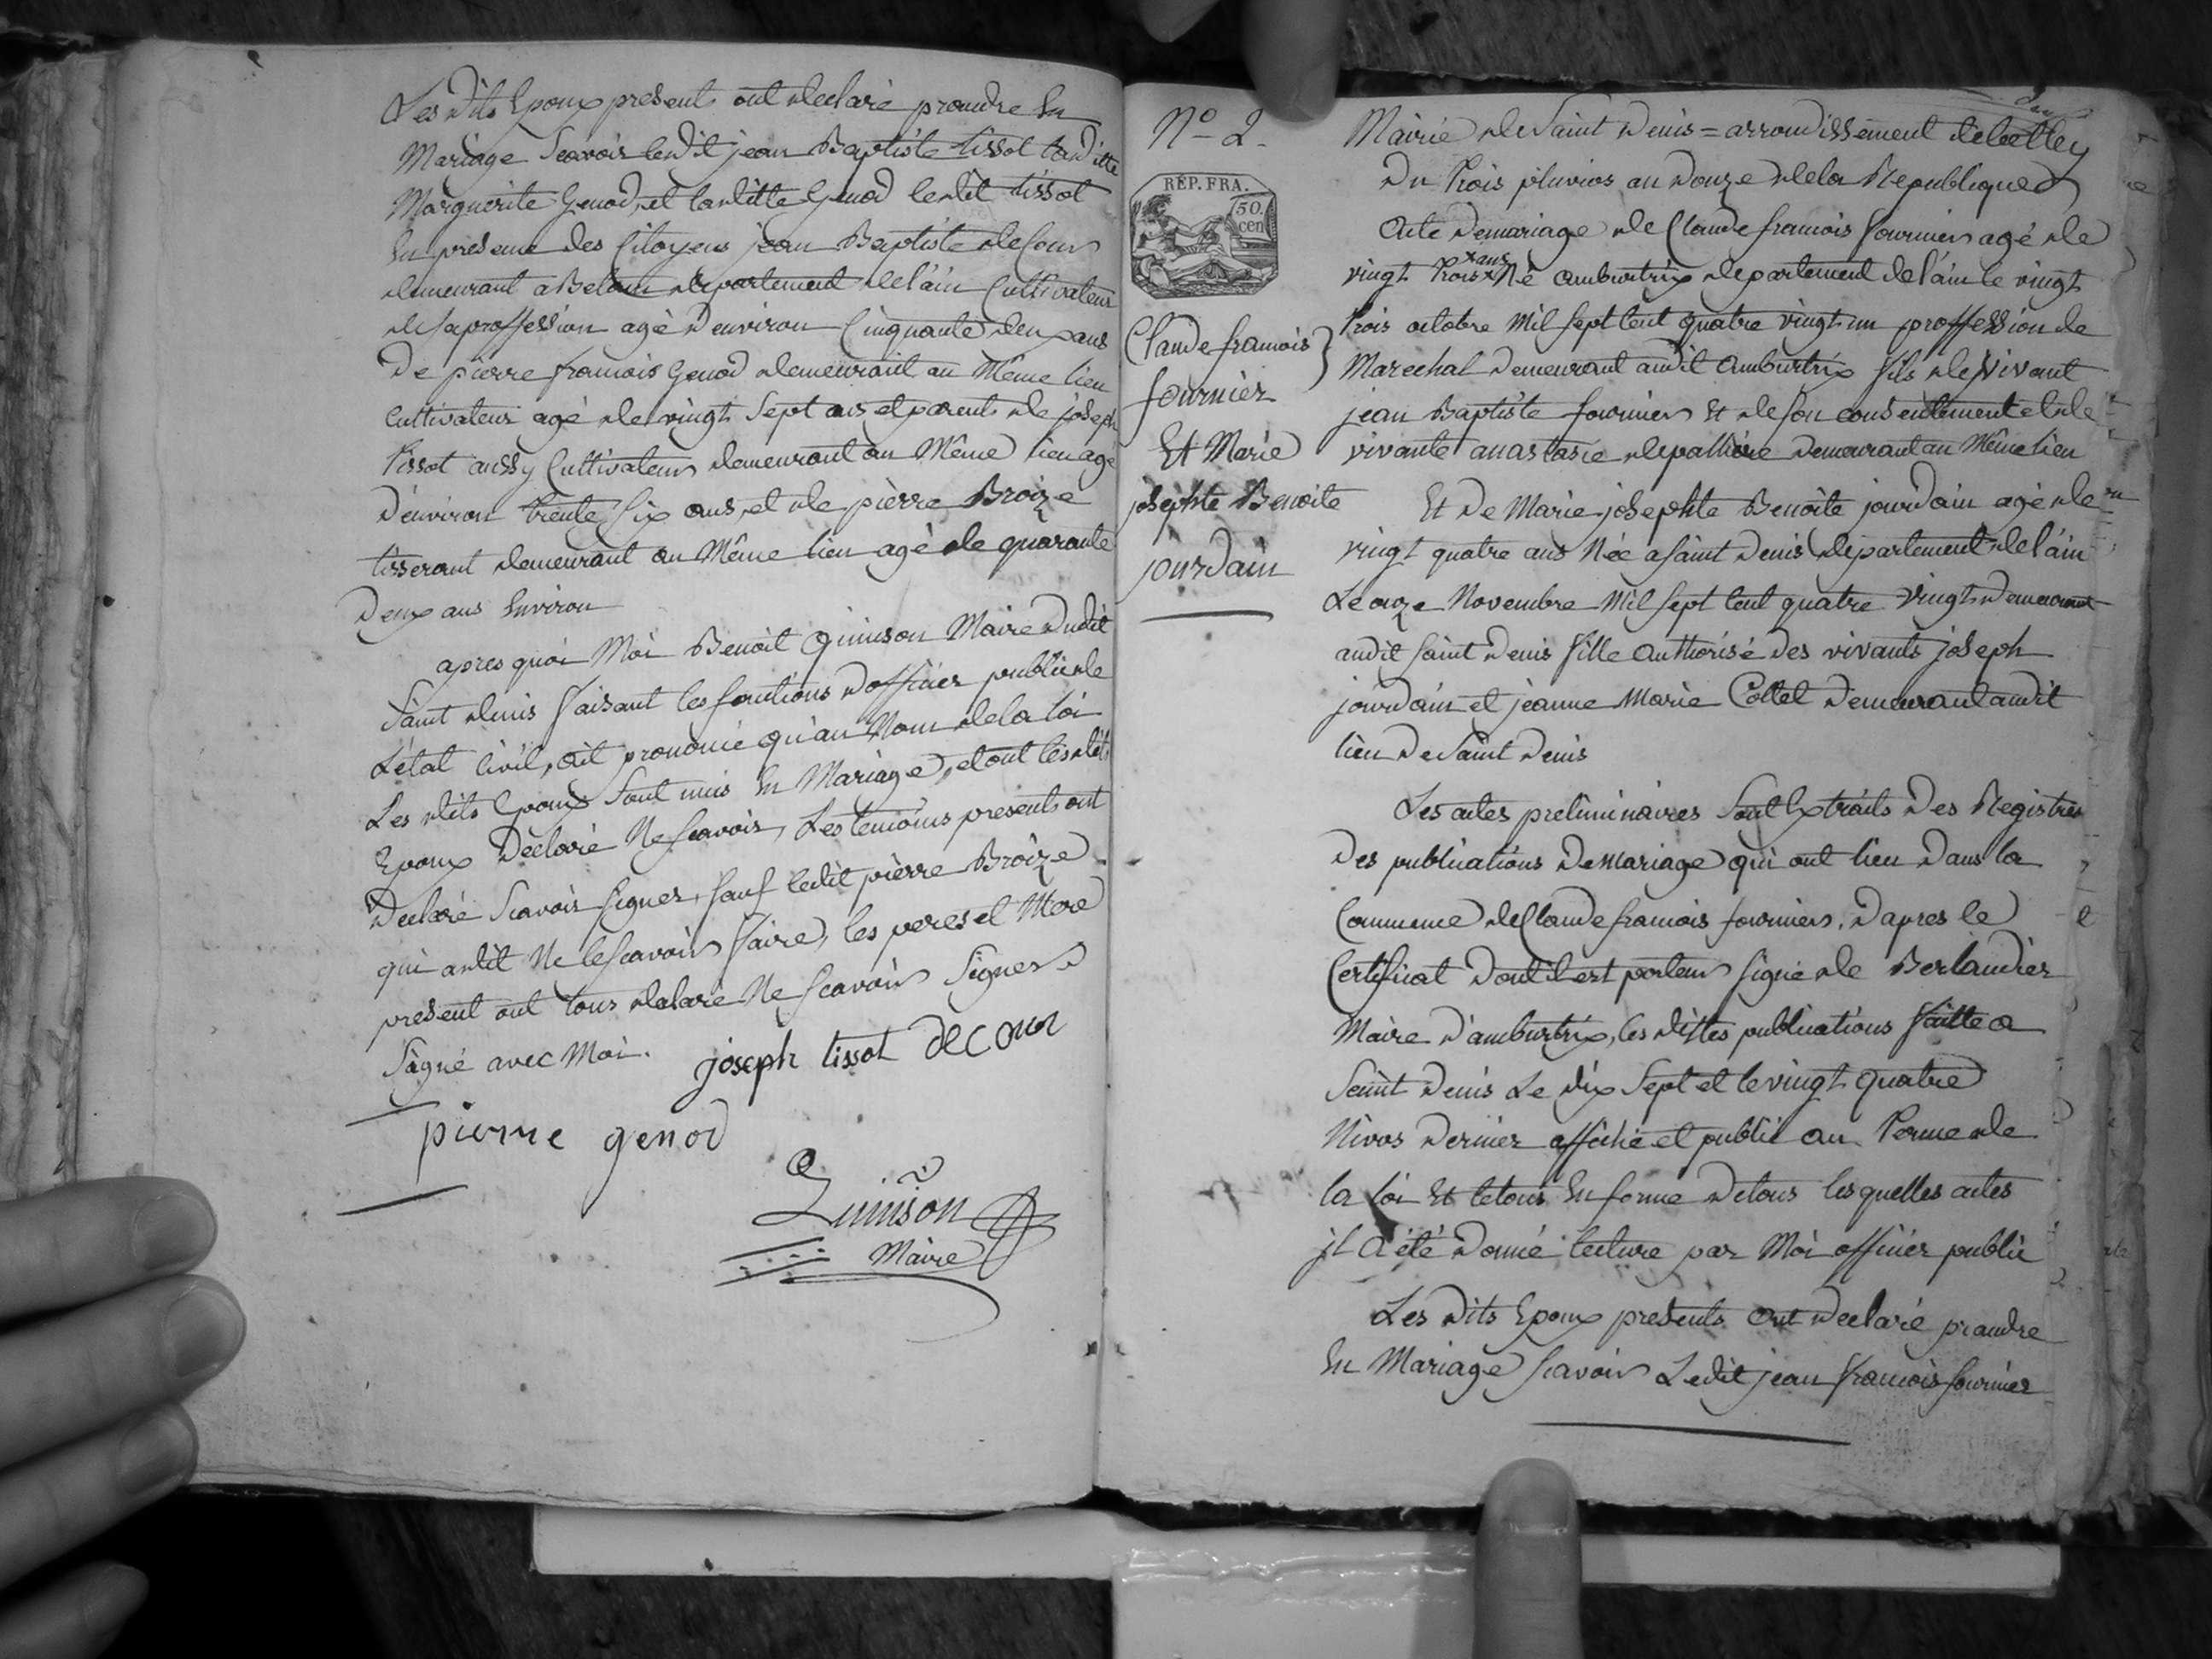 Les dits Epoux presents ont declaré prandre En
Mariage Scavoir ledit jean Baptiste tissot laditte
Marguerite Genod, et laditte Genod ledit tissot
En presence des Citoyens jean Baptiste deCour
demeurant a departement de l'ain Cultivateur
de sa proffession agé d'environ Cinquante deux ans
De pierre francois Genod demeurant au Même lieu
Cultivateur agé de vingt Sept ans et parents de joseph
tissot aussy Cultivateur demeurant au Même lieu agé
d'environ trente six ans, et de pièrre Broize
tisserant demeurant au Même lieu agé de quarante
deux ans Environ
apres quoi Moi Benoit Quinson Maire dudit
Saint denis faisant les fonctions d'officier public de
L'état Civil, ait prononcé qu'au Nom de la loi
Les dits Epoux Sont unis En Mariage, et ont lesdits
Epoux Déclaré Ne Scavoir, Les temoins presents ont
Declaré Scavoir signer, sauf ledit pièrre Broize
qui a dit Ne le scavoir faire, les peres et Mere
present ont tous declaré Ne Scavoir Signer
Signé avec Moi. joseph tissot decour
pierre genod
Quinson
Maire
N° 2.
REP. FRA.
50.
cen
Claude francois
fournier
Et Marie
josephte Benoite
jourdain
Mairie de Saint Denis = arrondissement de belley
Du trois pluvios an Douze de la Republique
Acte de mariage de Claude francois fournier agé de
vingt trois × ans × Né ambutrix departement de l'ain le vingt
trois octobre Mil sept Cent quatre vingt un proffession de
Marechal Demeurant audit Ambutrix fils de vivant
jean Baptiste fournier Et de son consentement et de
vivante anastasie depallière demeurant au Même lieu
Et De Marie josephte Benoite jourdain agé de
vingt quatre ans Née a saint Denis departement de l'ain
Le onze Novembre Mil sept Cent quatre vingt Demeurant
audit saint Denis fille Authorisé des vivants joseph
jourdain et jeanne Marie Collet Demeurant audit
lieu De Saint Denis
Les actes preliminaires Sont Extraits Des Registres
Des publications De Mariage qui ont lieu Dans la
Commune de Claude francois fournier. D'apres le
Certificat dont il est porteur signé de Berlandier
Maire D'ambutrix, les dittes publications faitte a
Saint Denis Le dix Sept et le vingt quatre
Nivos Dernier affiché et publié au Terme de
la loi Et le tous En forme De tous lesquelles actes
jl a été Donné lecture par Moi officier public
Les Dits Epoux presents ont Declaré prandre
En Mariage scavoir Ledit jean francois fournier